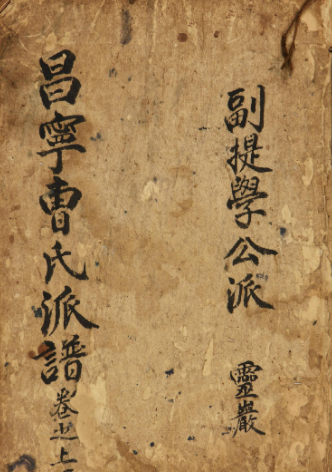 副提學公派
靈巖
昌寧曺氏派譜
卷之上